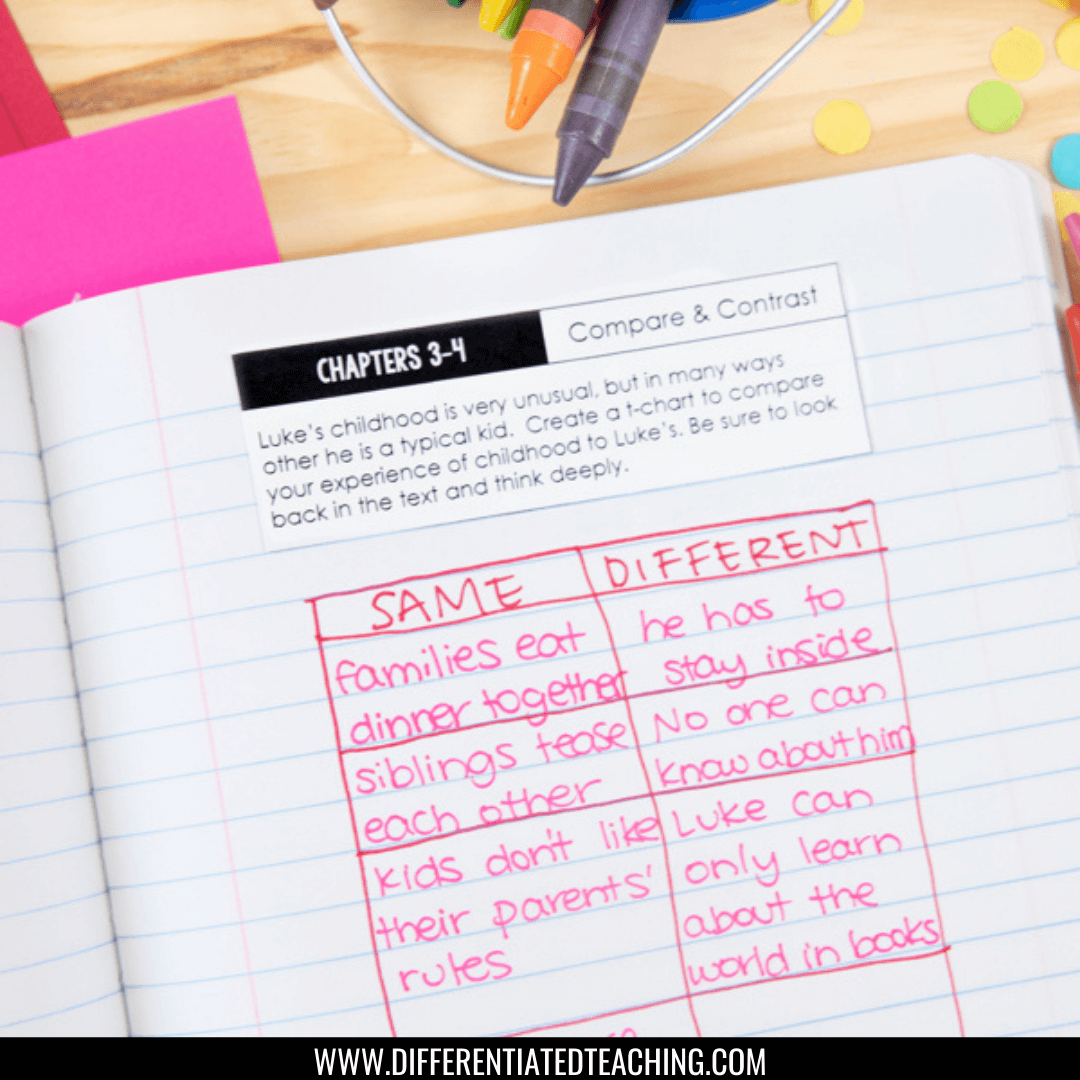 CHAPTERS 3-4
Compare & Contrast
Luke's childhood is very unusual, but in many ways
other he is a typical kid. Create a t-chart to compare
your experience of childhood to Luke's. Be sure to look
back in the text and think deeply.
SAME
DIFFERENT
families eat
dinner together
he has to
stay inside
siblings tease
each other
No one can
know about him
kids don't like
their parents'
rules
Luke can
only learn
about the
world in books
WWW.DIFFERENTIATEDTEACHING.COM